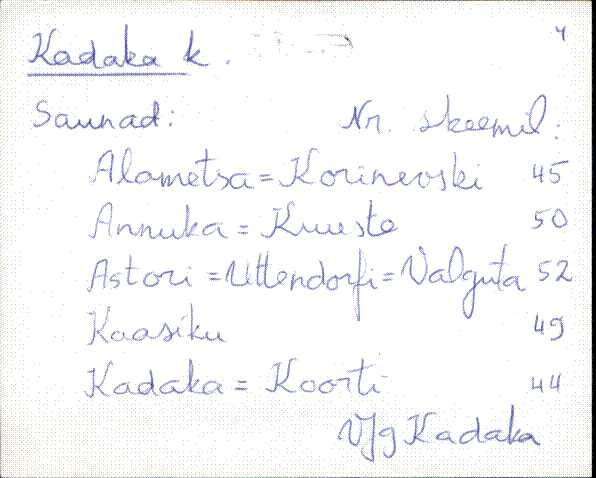 Kadaka k. 4
Saunad: Nr. skeemil:
Alametsa = Korinevski 45
Annuka = Kuuste 50
Astori = Uttendorfi = Valguta 52
Kaasiku 49
Kadaka = Koorti 44
Vjg Kadaka